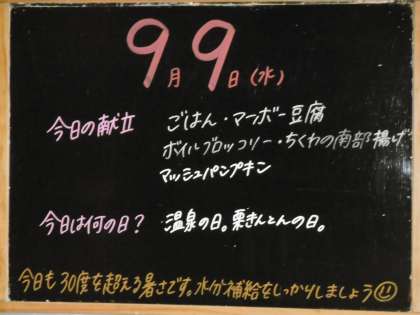 9月9日(水)
今日の献立 ごはん・マーボー豆腐
ボイルブロッコリー・ちくわの南部揚げ
マッシュパンプキン
今日は何の日? 温泉の日。栗きんとんの日。
今日も30度を超える暑さです。水分補給をしっかりしましょう